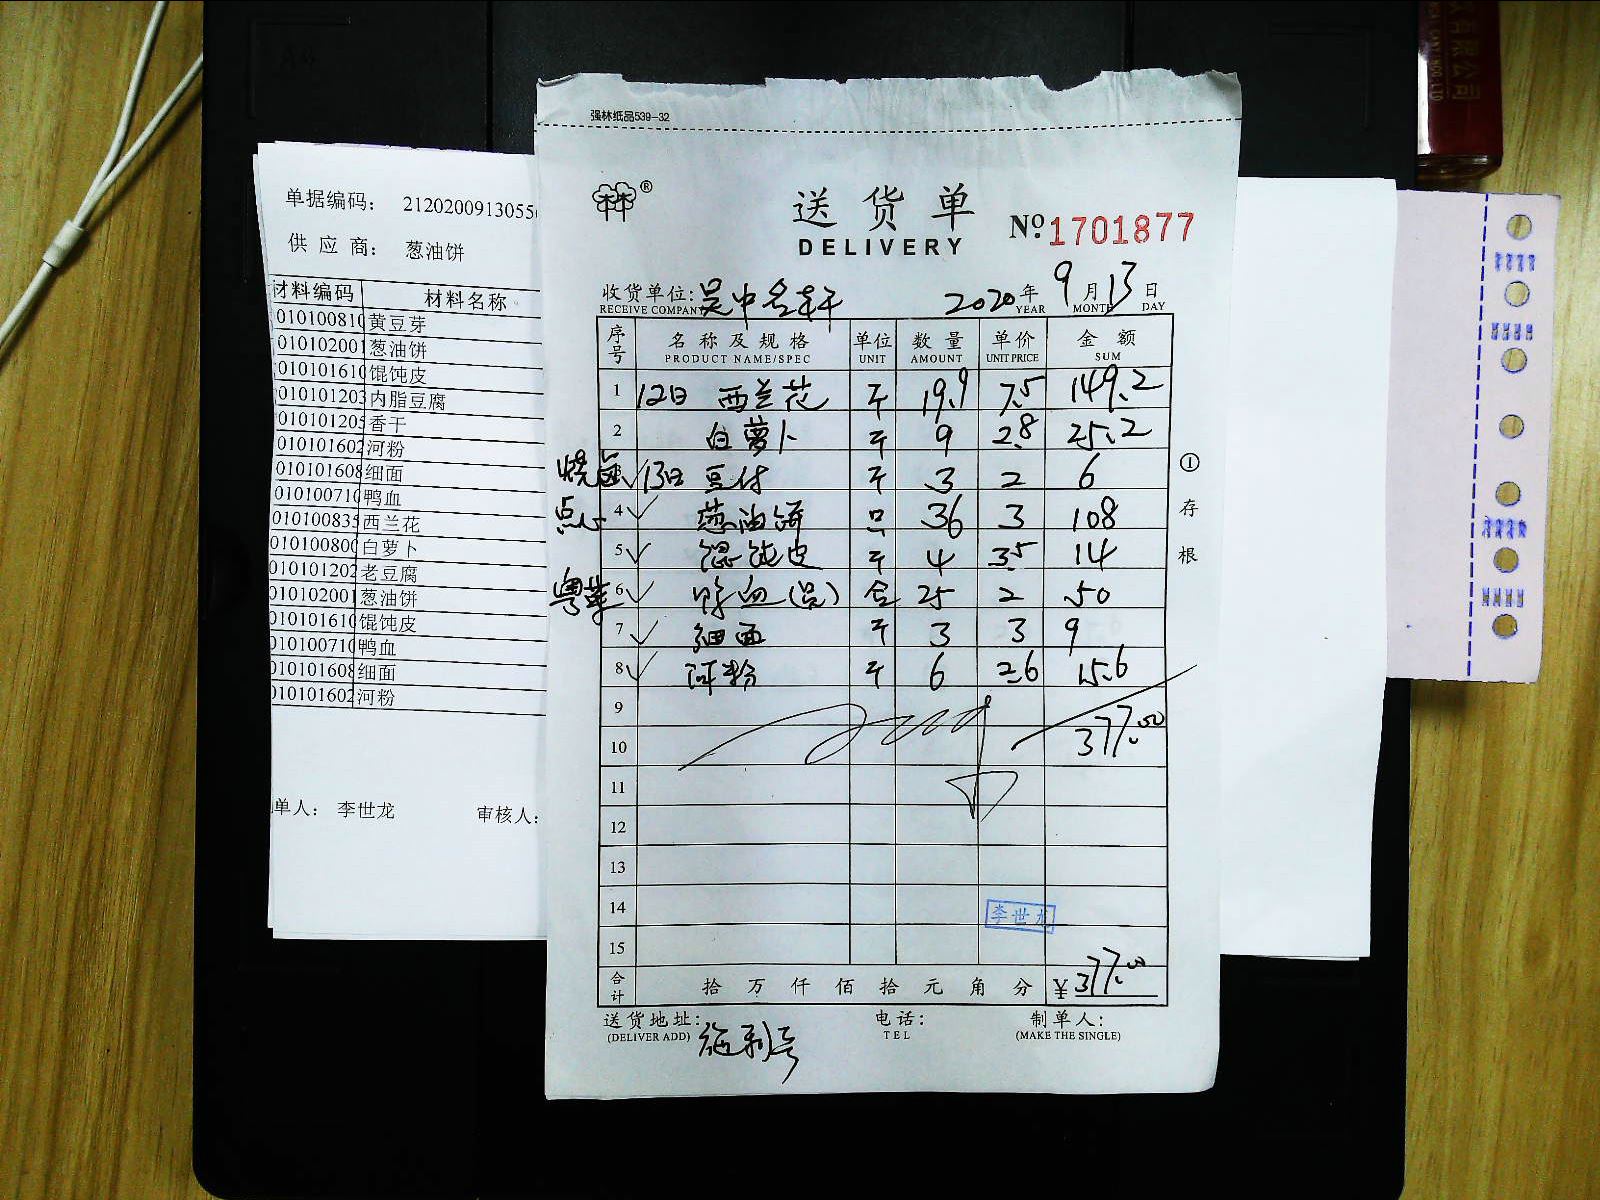 强林纸品539-32
送货单
DELIVERY
№ 1701877
收货单位: 吴中名轩 2020年 9月 13日
RECEIVE COMPANY YEAR MONTH DAY
序号 名称及规格 单位 数量 单价 金额
PRODUCT NAME/SPEC UNIT AMOUNT UNIT PRICE SUM
1 12日 西兰花 斤 19.9 7.5 149.2
2 白萝卜 斤 9 2.8 25.2
烧卤 3 13日 豆付 斤 3 2 6
点心 4 葱油饼 只 36 3 108
5 馄饨皮 斤 4 3.5 14
粤菜 6 鸭血(吴) 盒 25 2 50
7 细面 斤 3 3 9
8 河粉 斤 6 2.6 15.6
9
10 377.00
11
12
13
14 李世龙
15
合计 拾 万 仟 佰 拾 元 角 分 ¥377.00
送货地址: 电话: 制单人:
(DELIVER ADD) TEL (MAKE THE SINGLE)
①存根
单据编码: 2120200913055
供应商: 葱油饼
材料编码 材料名称
01010081 黄豆芽
010102001 葱油饼
01010161 馄饨皮
010101203 内脂豆腐
01010120 香干
010101602 河粉
010101608 细面
01010071 鸭血
01010083 西兰花
01010080 白萝卜
010101202 老豆腐
010102001 葱油饼
01010161 馄饨皮
01010071 鸭血
010101608 细面
010101602 河粉
单人: 李世龙 审核人:
有限公司